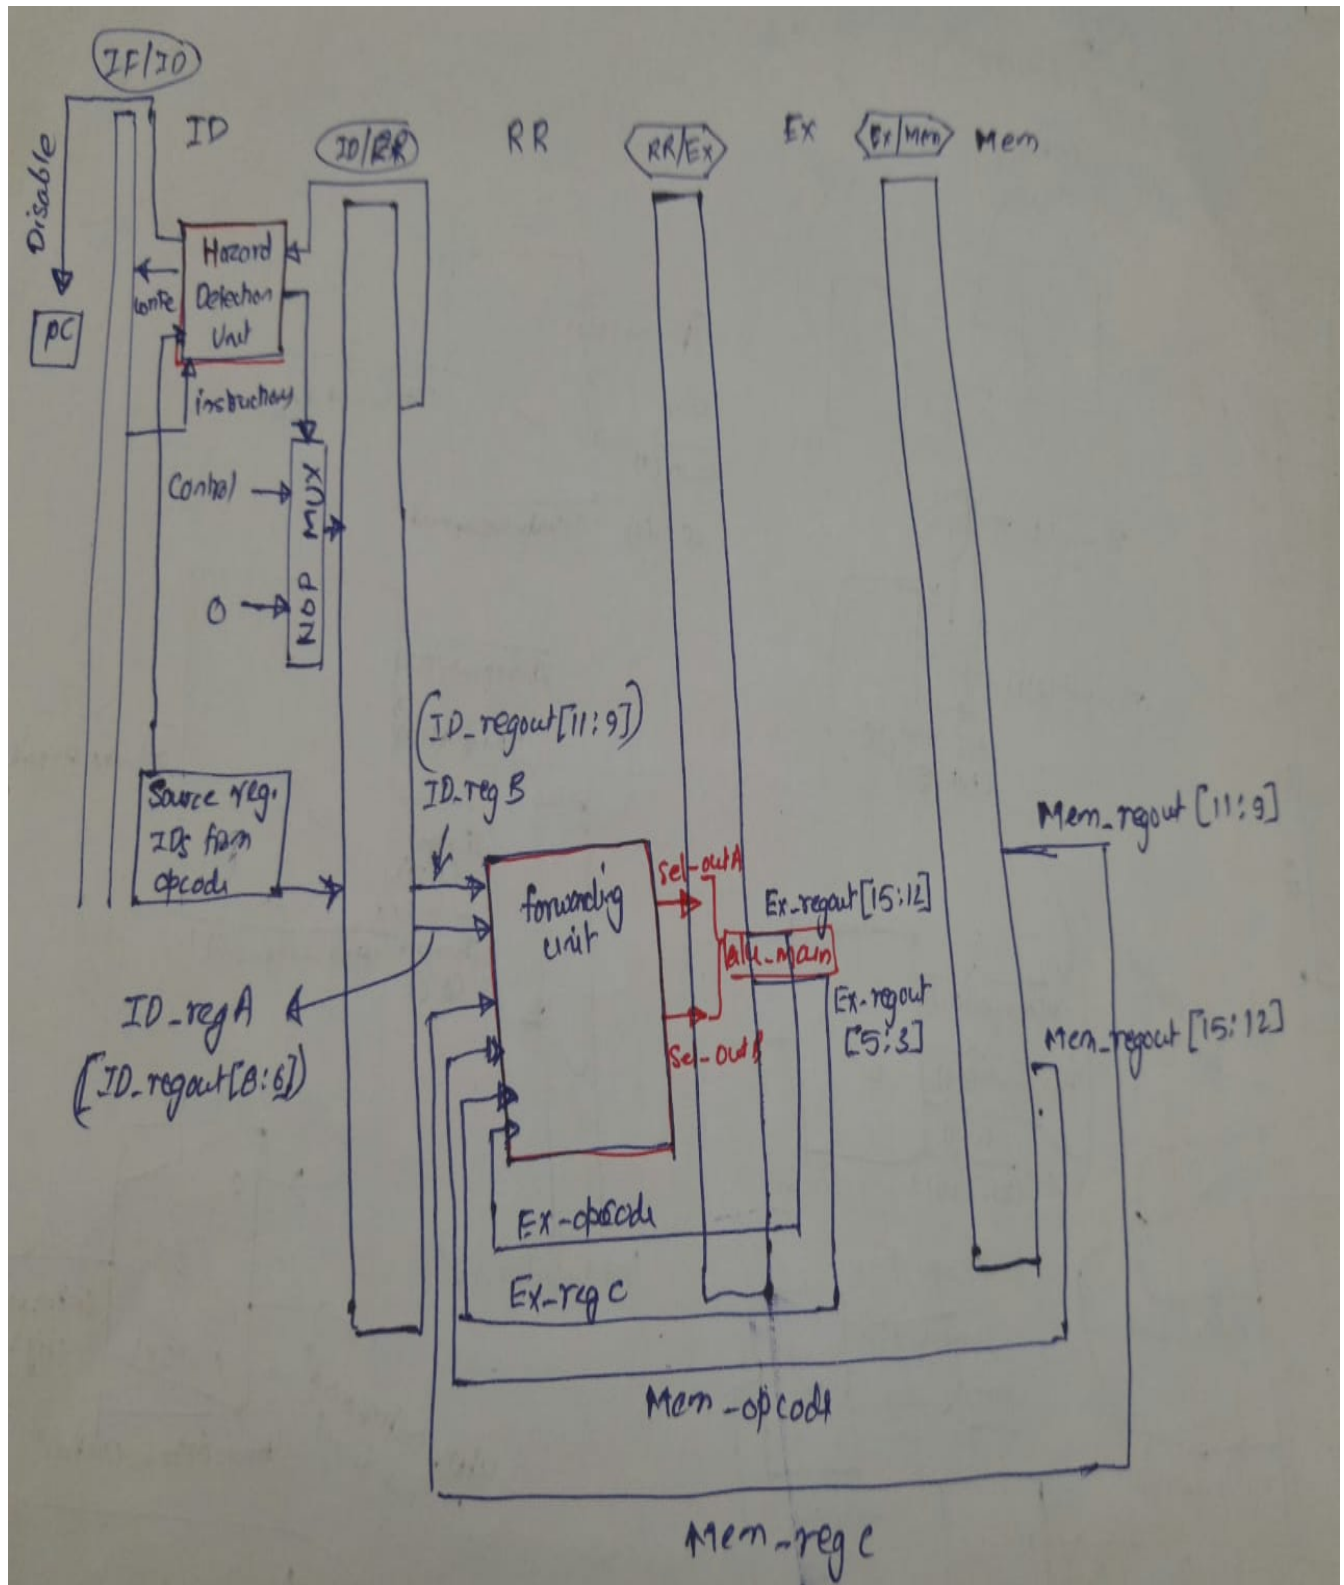 IF/ID
ID
ID/RR
RR
RR/EX
EX
EX/Mem
Mem
Disable
PC
Hazard
Detection
Unit
instructions
Control
0
NOP MUX
(ID_regout[11:9])
ID_reg B
Source reg.
IDs from
opcode
forwarding
unit
Sel-outA
Sel-out
Ex_regout[15:12]
alu_main
Ex-regout
[5:3]
Mem_regout [11:9]
Mem_regout [15:12]
ID_regA
(ID_regout[8:6])
Ex-opcode
Ex_reg C
Mem_opcode
Mem_reg C